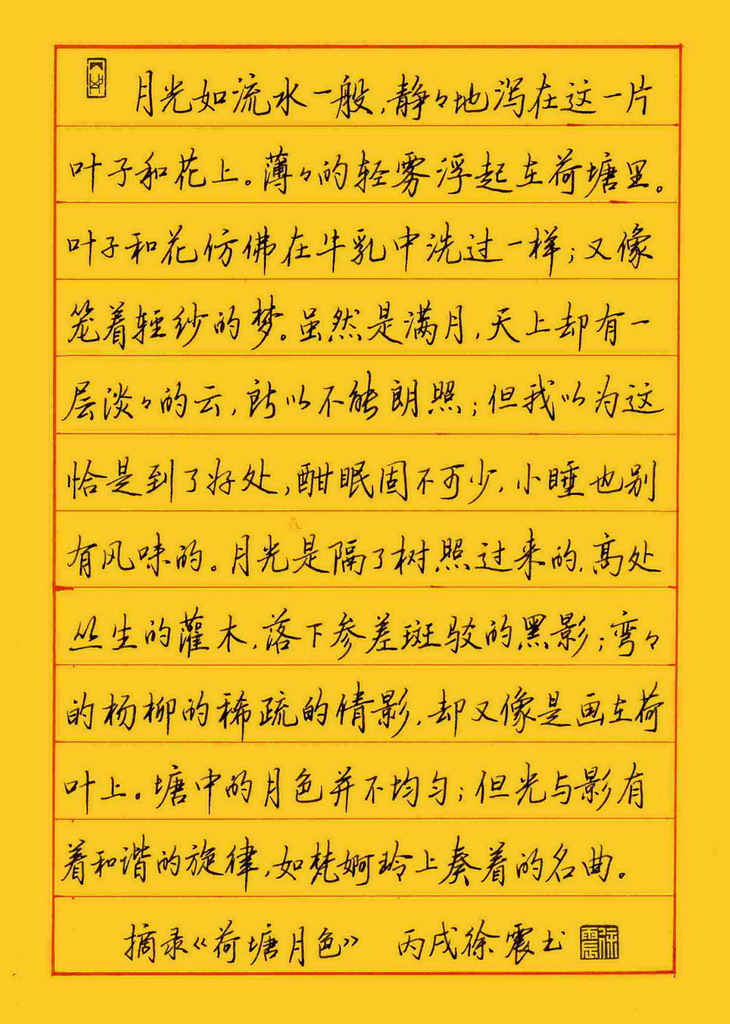 月光如流水一般,静々地泻在这一片
叶子和花上。薄々的轻雾浮起在荷塘里。
叶子和花仿佛在牛乳中洗过一样;又像
笼着轻纱的梦。虽然是满月,天上却有一
层淡々的云,所以不能朗照;但我以为这
恰是到了好处,酣眠固不可少,小睡也别
有风味的。月光是隔了树照过来的,高处
丛生的灌木,落下参差斑驳的黑影;弯々
的杨柳的稀疏的倩影,却又像是画在荷
叶上。塘中的月色并不均匀;但光与影有
着和谐的旋律,如梵婀玲上奏着的名曲。
摘录《荷塘月色》 丙戌徐震书